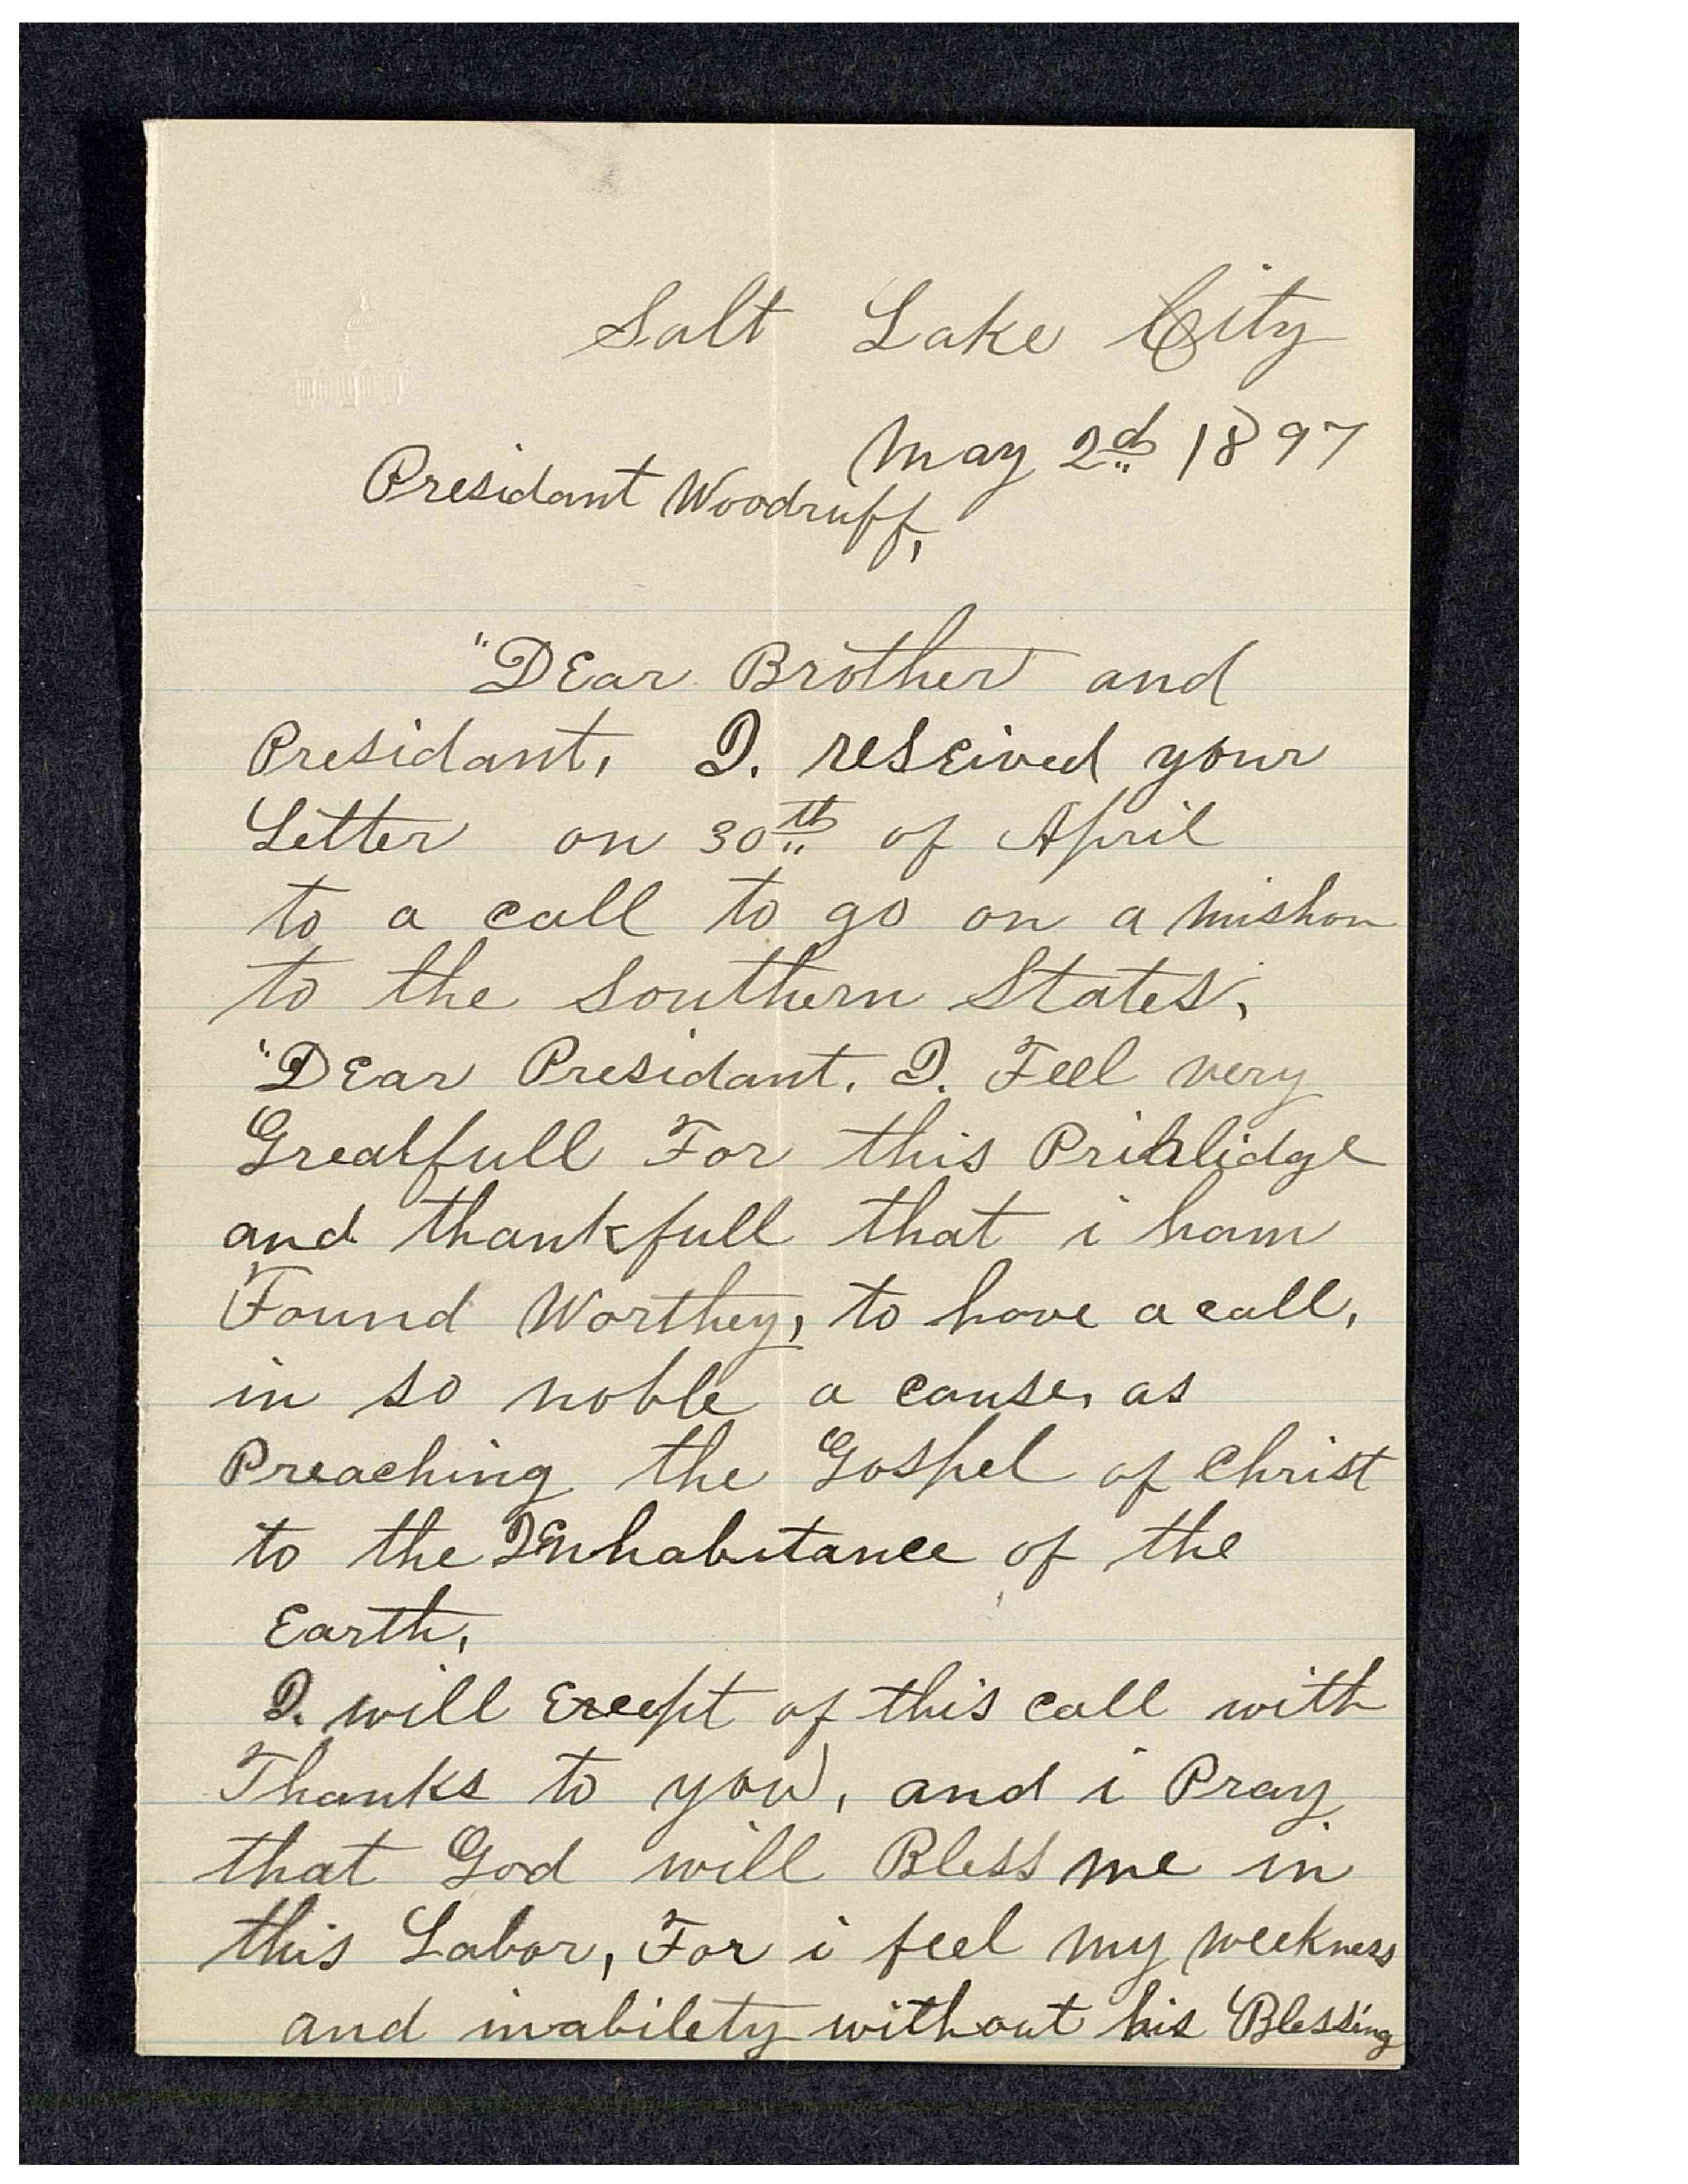 Salt Lake City
May 2d 1897
Presidant Woodruff,
"DEar Brother and
Presidant, I. reseived your
Letter on 30th of April
to a call to go on a mishon
to the Southern States,
"DEar Presidant, I. Feel very
Greatfull For this
and thankfull that i ham
Found Worthey, to have a call,
in so noble a cause, as
Preaching the Gospel of Christ
to the of the
Earth,
I. will of this call with
Thanks to you, and i Pray
that God will Bless me in
this Labor, For i feel my weekness
and inabilety without his Blessing